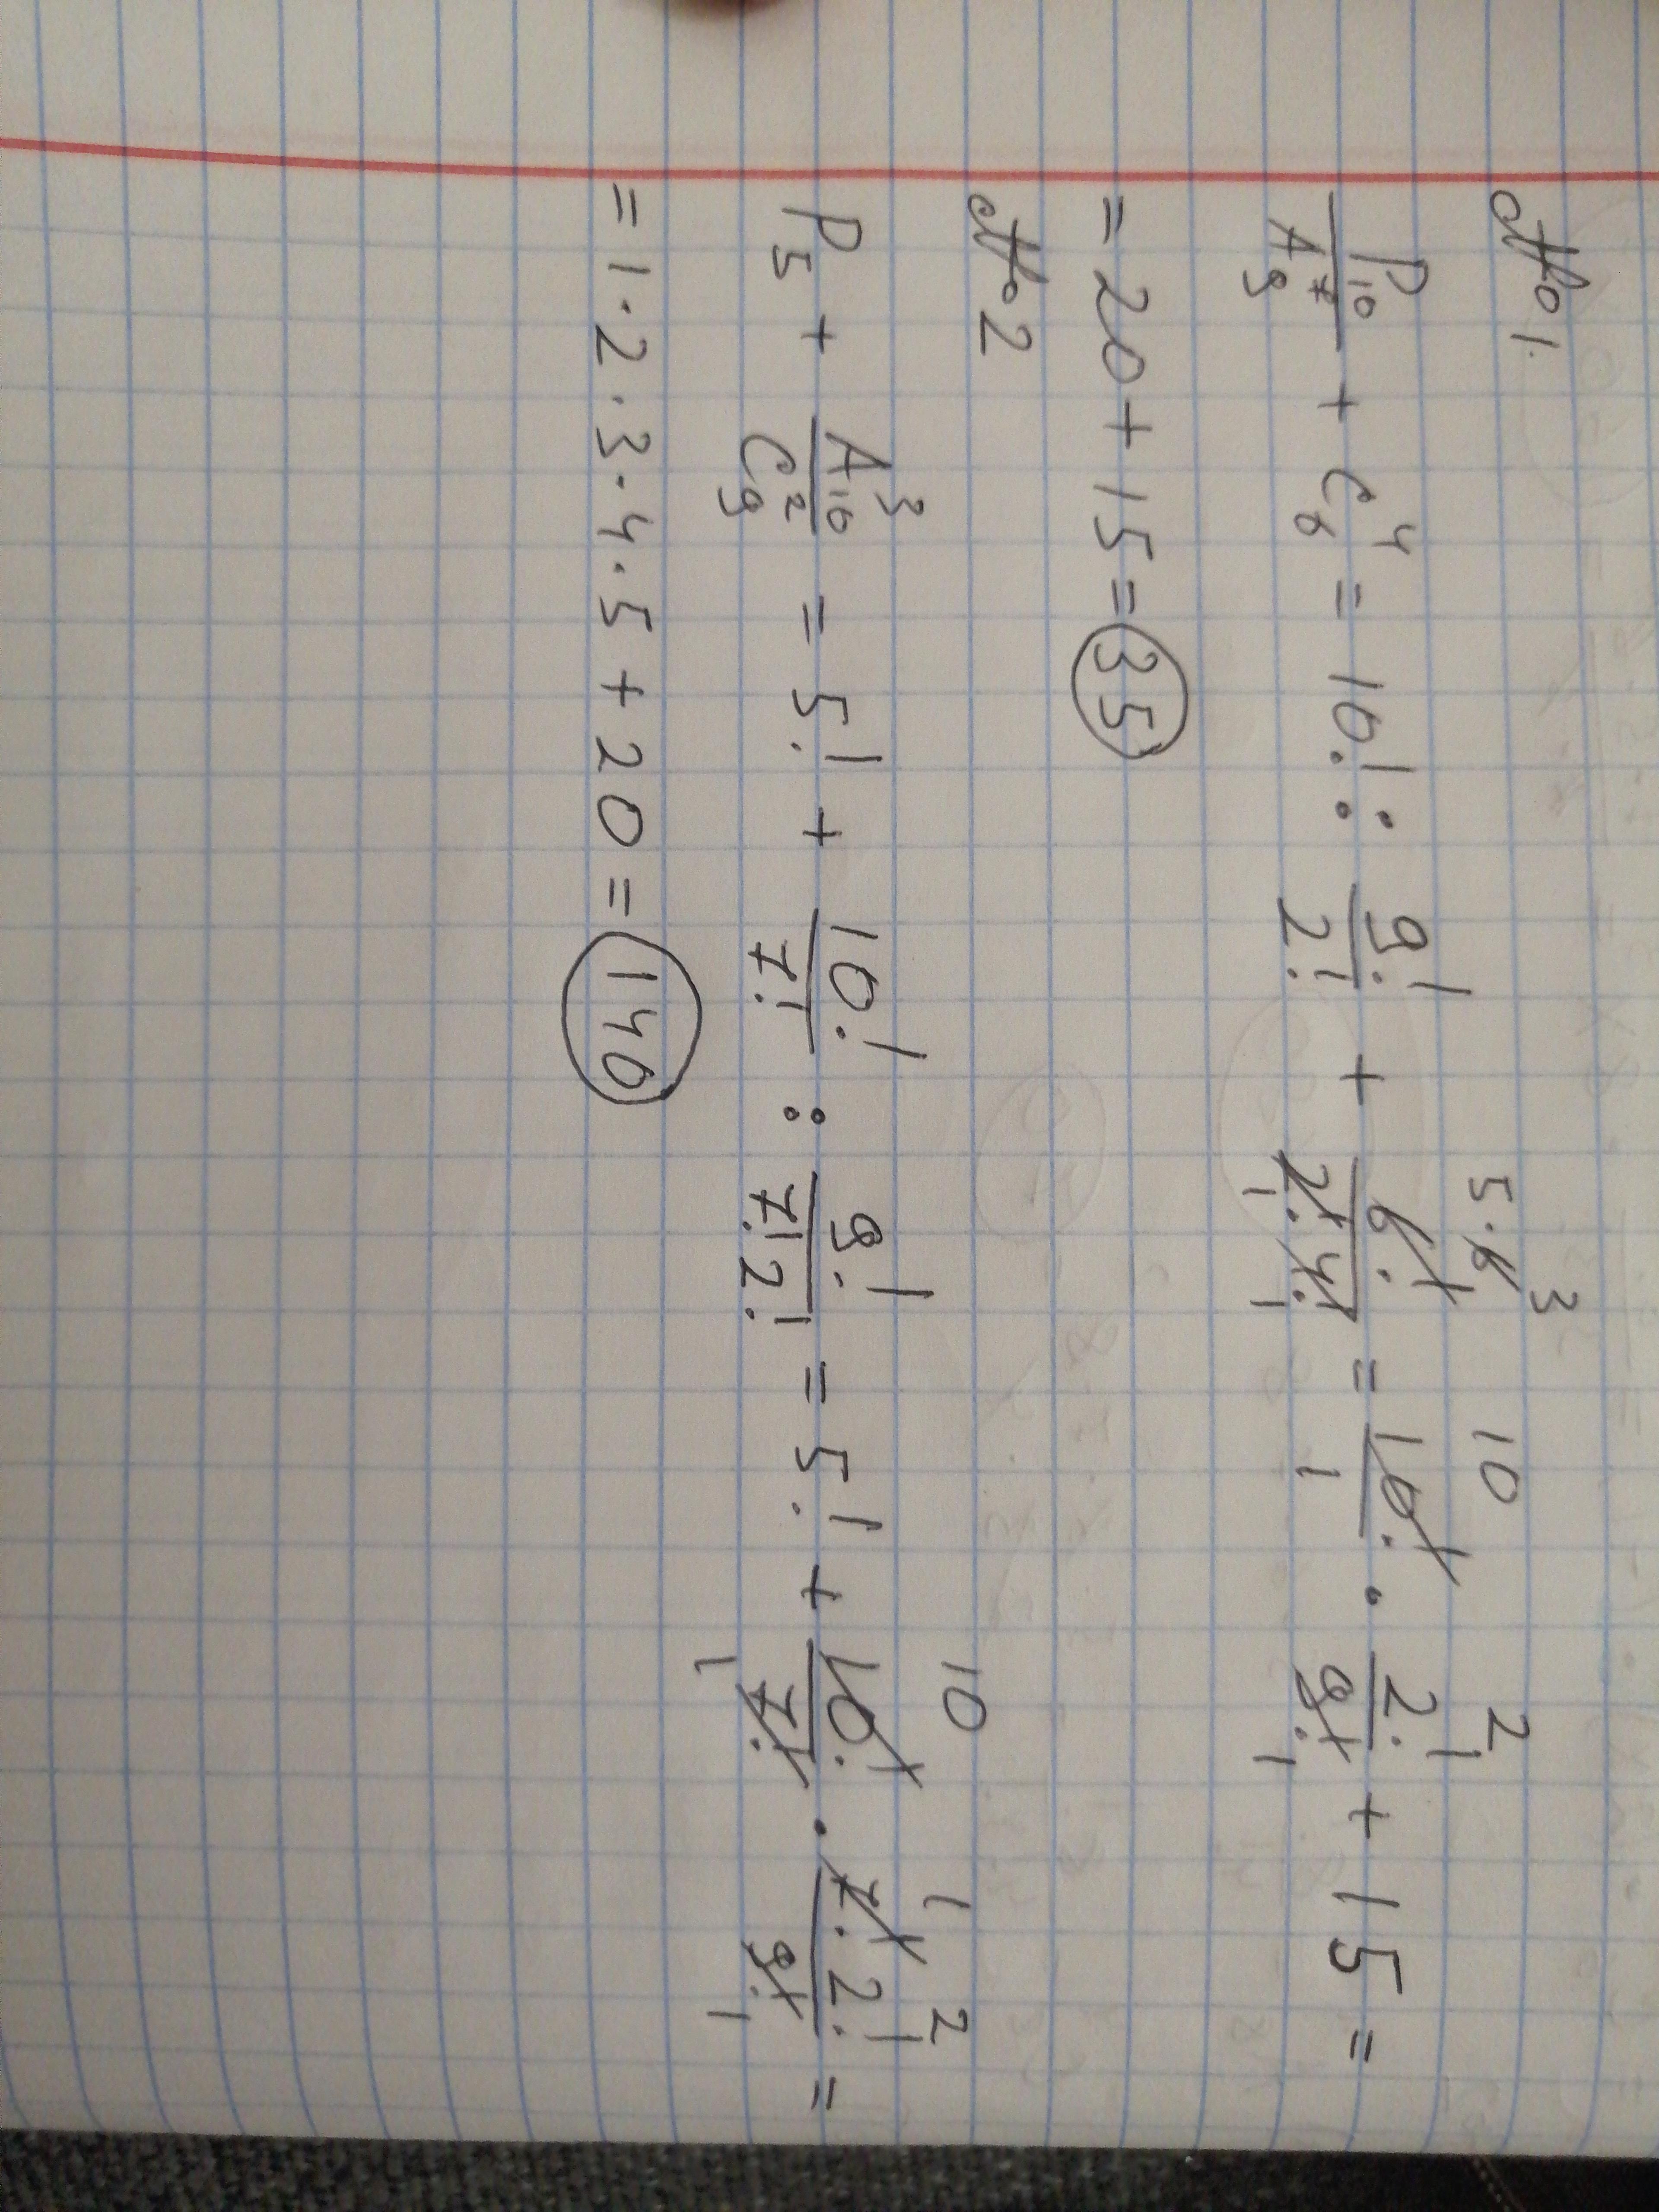 №1.
P₁₀/A₉⁷ + C₆⁴ = 10! : 9!/2! + 6!/(2!·4!) 5·6 3 1 1 = 10!/1 10 · 2!/9! 2 1 + 15 =
= 20 + 15 = 35
№2
P₅ + A₁₀³/C₉² = 5! + 10!/7! : 9!/(7!2!) = 5! + 10!/7! 10 1 · 7!2!/9! 1 2 1 =
= 1·2·3·4·5 + 20 = 140